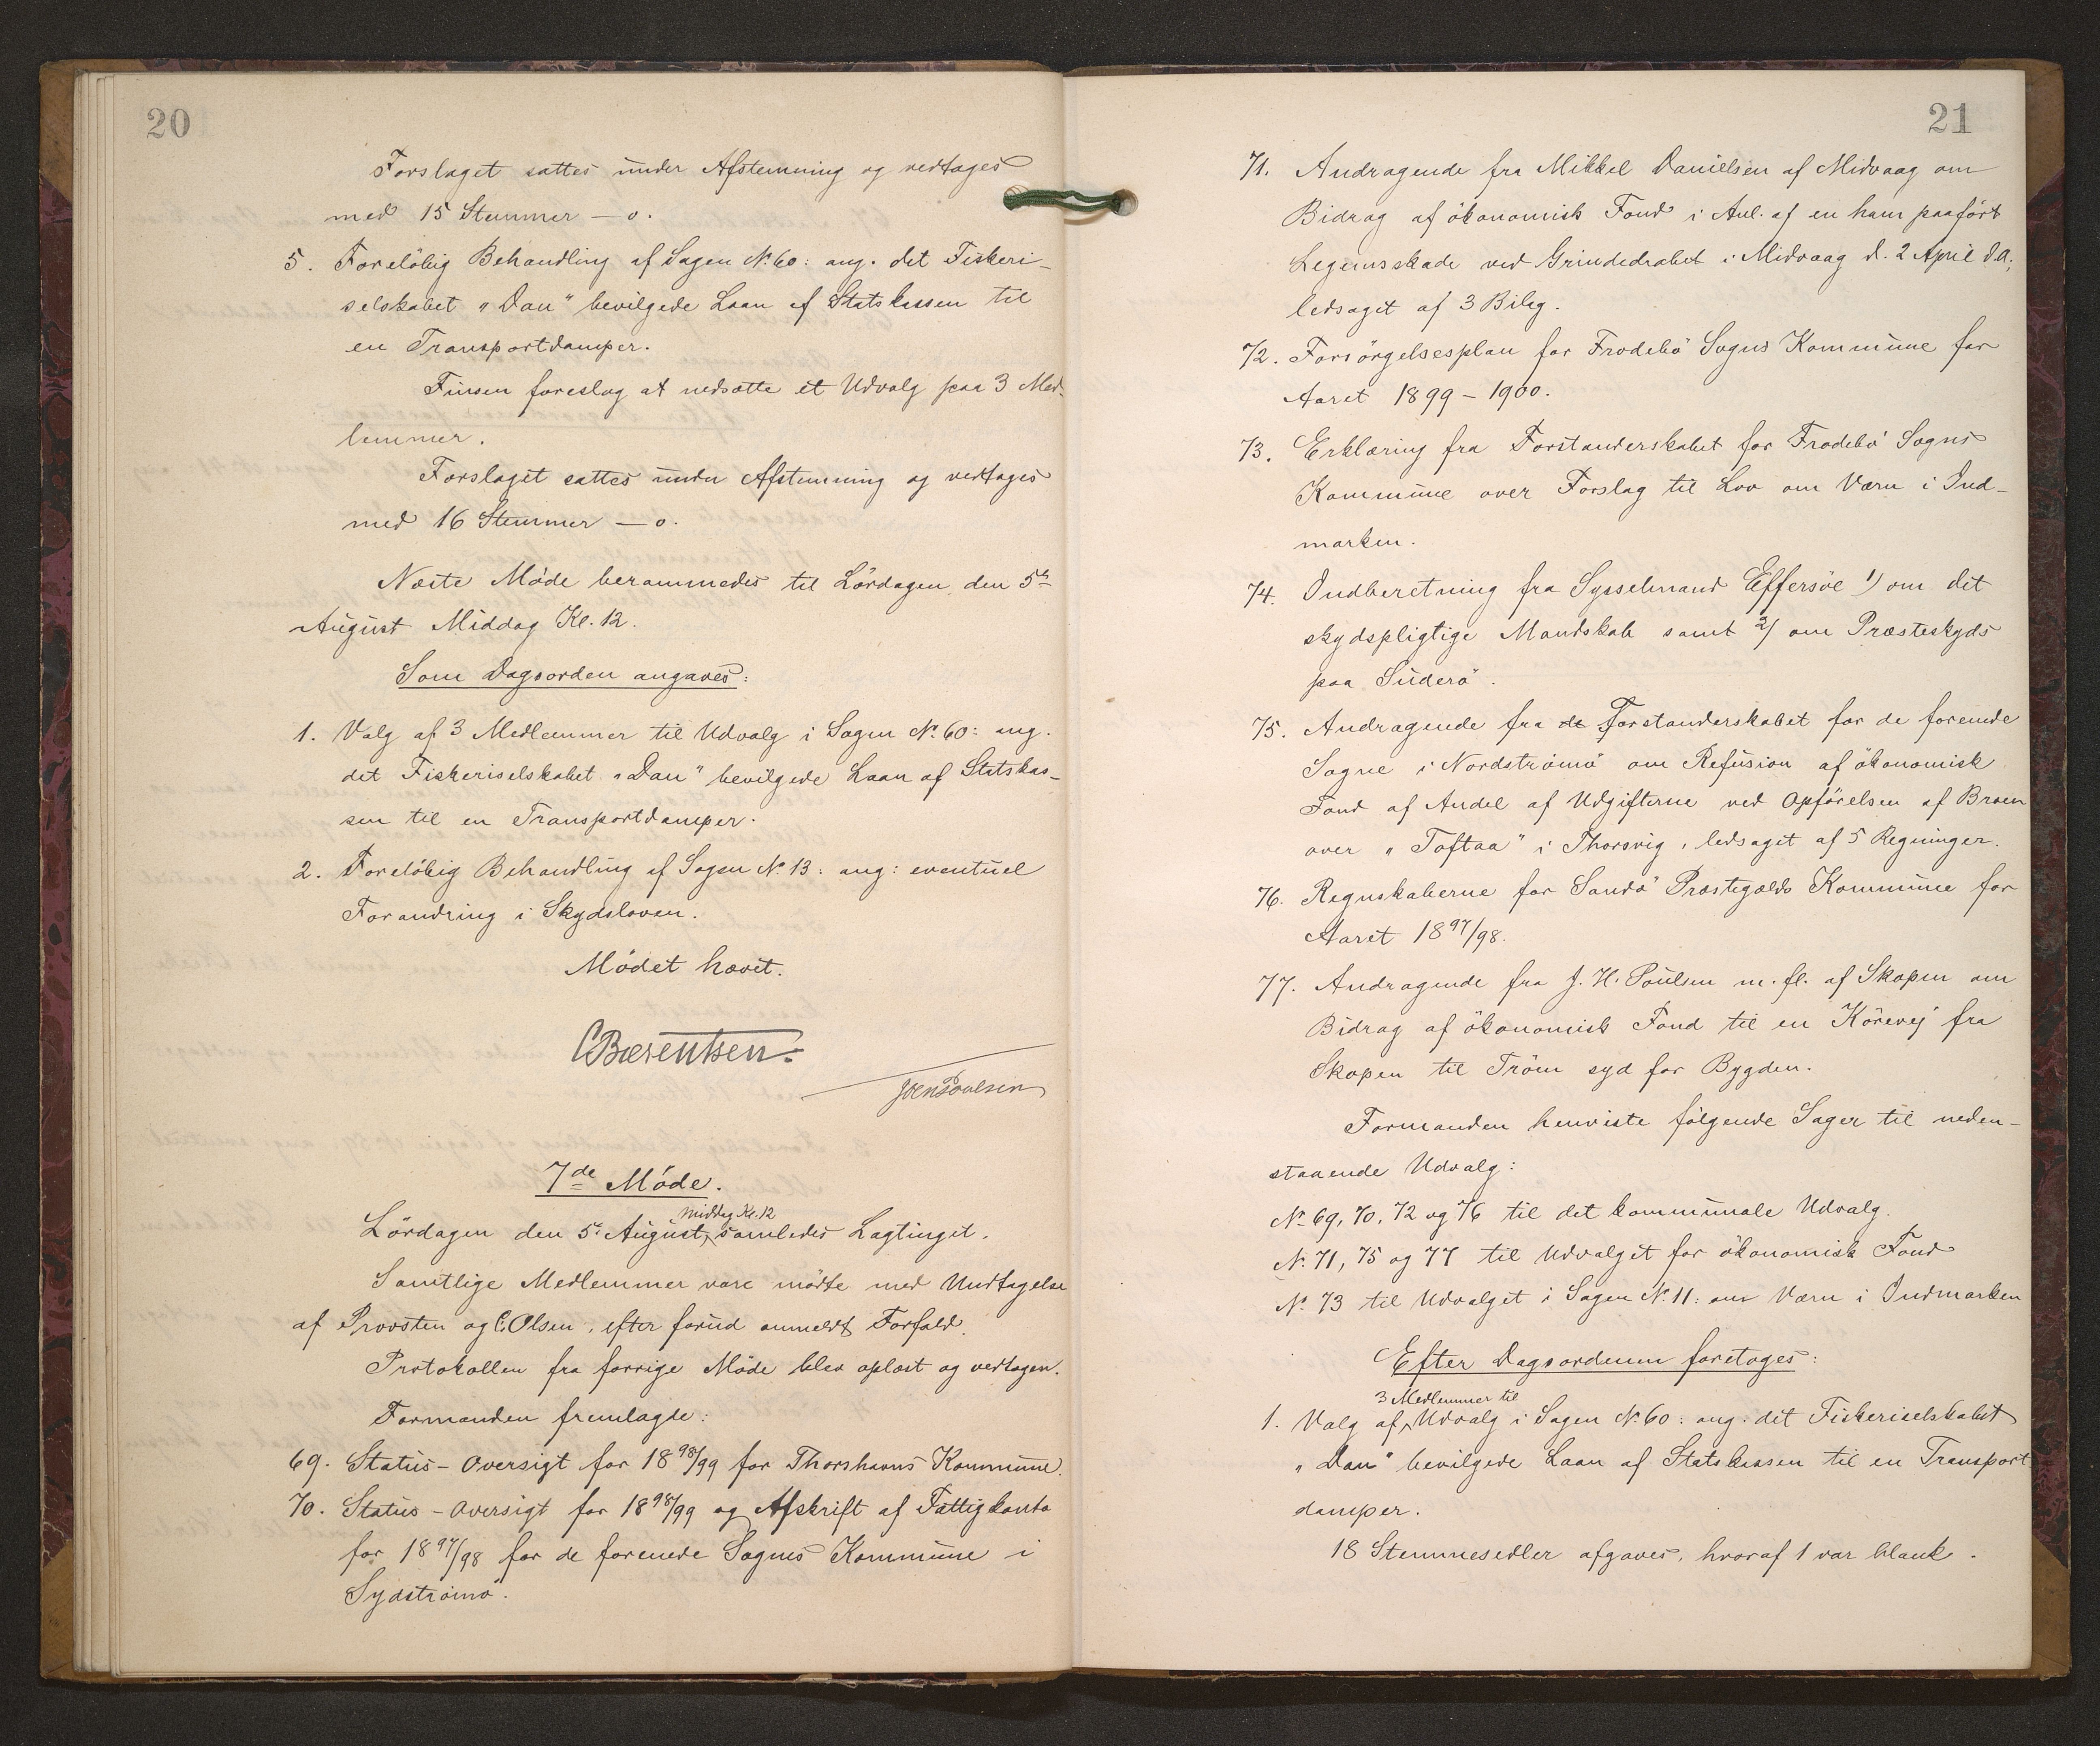 20
Forslaget sattes under Afstemning og vedtages
med 15 Stemmer – o.
5. Foreløbig Behandling af Sagen No 60: ang. det Fiskeri-
selskabet "Dan" bevilgede Laan af Statskassen til
en Transportdamper.
Finsen foreslog at nedsætte et Udvalg paa 3 Med-
lemmer.
Forslaget sattes under Afstemning og vedtages
med 16 Stemmer – o.
Næste Møde berammedes til Lördagen den 5te
August Middag Kl. 12.
Som Dagsorden angaves:
1. Valg af 3 Medlemmer til Udvalg i Sagen No 60: ang.
det Fiskeriselskabet "Dan" bevilgede Laan af Statskas-
sen til en Transportdamper.
2. Foreløbig Behandling af Sagen No 13: ang: eventuel
Forandring i Skydsloven.
Mödet hævet.
CBærentsen.
JoenPoulsen
7de Møde.
Lördagen den 5. August, middag Kl. 12 samledes Lagtinget.
Samtlige Medlemmer vare mödte med Undtagelse
af Provsten og C. Olsen, efter forud anmeldt Forfald.
Protokollen fra forrige Möde blev oplæst og vedtagen.
Formanden fremlagde:
69. Status-Oversigt for 1898/99 for Thorshavns Kommune.
70. Status-Oversigt for 1898/99 og Afskrift af Fattigkonto
for 1897/98 for de forenede Sognes Kommune i
Sydströmö.
21
71. Andragende fra Mikkel Danielsen af Midvaag om
Bidrag af ökonomisk Fond i Anl. af en ham paaført
Legemsskade ved Grindedrabet i Midvaag d. 2 April d.A.,
ledsaget af 3 Bilag.
72. Forsörgelsesplan for Frodebö Sogns Kommune for
Aaret 1899-1900.
73. Erklæring fra Forstanderskabet for Frodebö Sogns
Kommune over Forslag til Lov om Værn i Ind-
marken.
74. Indberetning fra Sysselmand Effersöe 1) om det
skydspligtige Mandskab samt 2) om Præsteskyds
paa Süderö.
75. Andragende fra de Forstanderskabet for de forenede
Sogne i Nordströmö om Refusion af ökonomisk
Fond af Andel af Udgifterne ved Opförelsen af Broen
over "Toftaa" i Thorsvig, ledsaget af 5 Regninger.
76. Regnskaberne for Sandö Præstegælds Kommune for
Aaret 1897/98.
77. Andragende fra J. H. Poulsen m. fl. af Skopen om
Bidrag af ökonomisk Fond til en Körevej fra
Skopen til Tröm syd for Bygden.
Formanden henviste følgende Sager til neden-
staaende Udvalg:
No 69, 70, 72 og 76 til det kommunale Udvalg.
No 71, 75 og 77 til Udvalget for ökonomisk Fond
No 73 til Udvalget i Sagen No 11: om Værn i Indmarken
Efter Dagsordenen foretoges:
1. Valg af 3 Medlemmer til Udvalg i Sagen No 60: ang. det Fiskeriselskabet
"Dan" bevilgede Laan af Statskassen til en Transport
damper.
18 Stemmesedler afgaves, hvoraf 1 var blank.